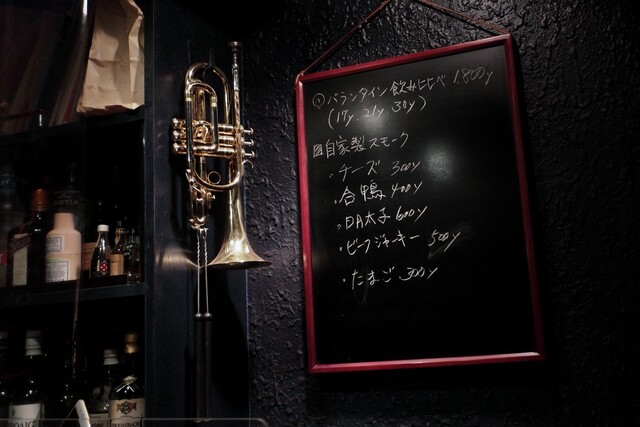 ① バランタイン 飲みくらべ 1.800y
(17y. 21y 30y)
自家製スモーク
・チーズ 300y
・合鴨 400y
・明太子 600y
・ビーフジャーキー 500y
・たまご 300y